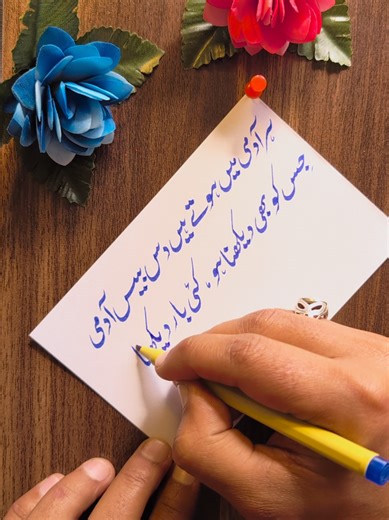 ہر آدمی میں ہوتے ہیں دس بیس آدمی
جس کو بھی دیکھنا ہو، کئی بار دیکھنا